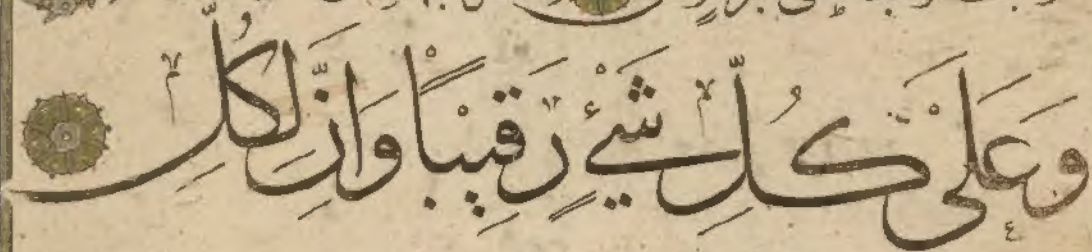 وَعَلَى كُلِّ شَيْءٍ رَقِيبًا وَاِنَّ لِكُلِّ